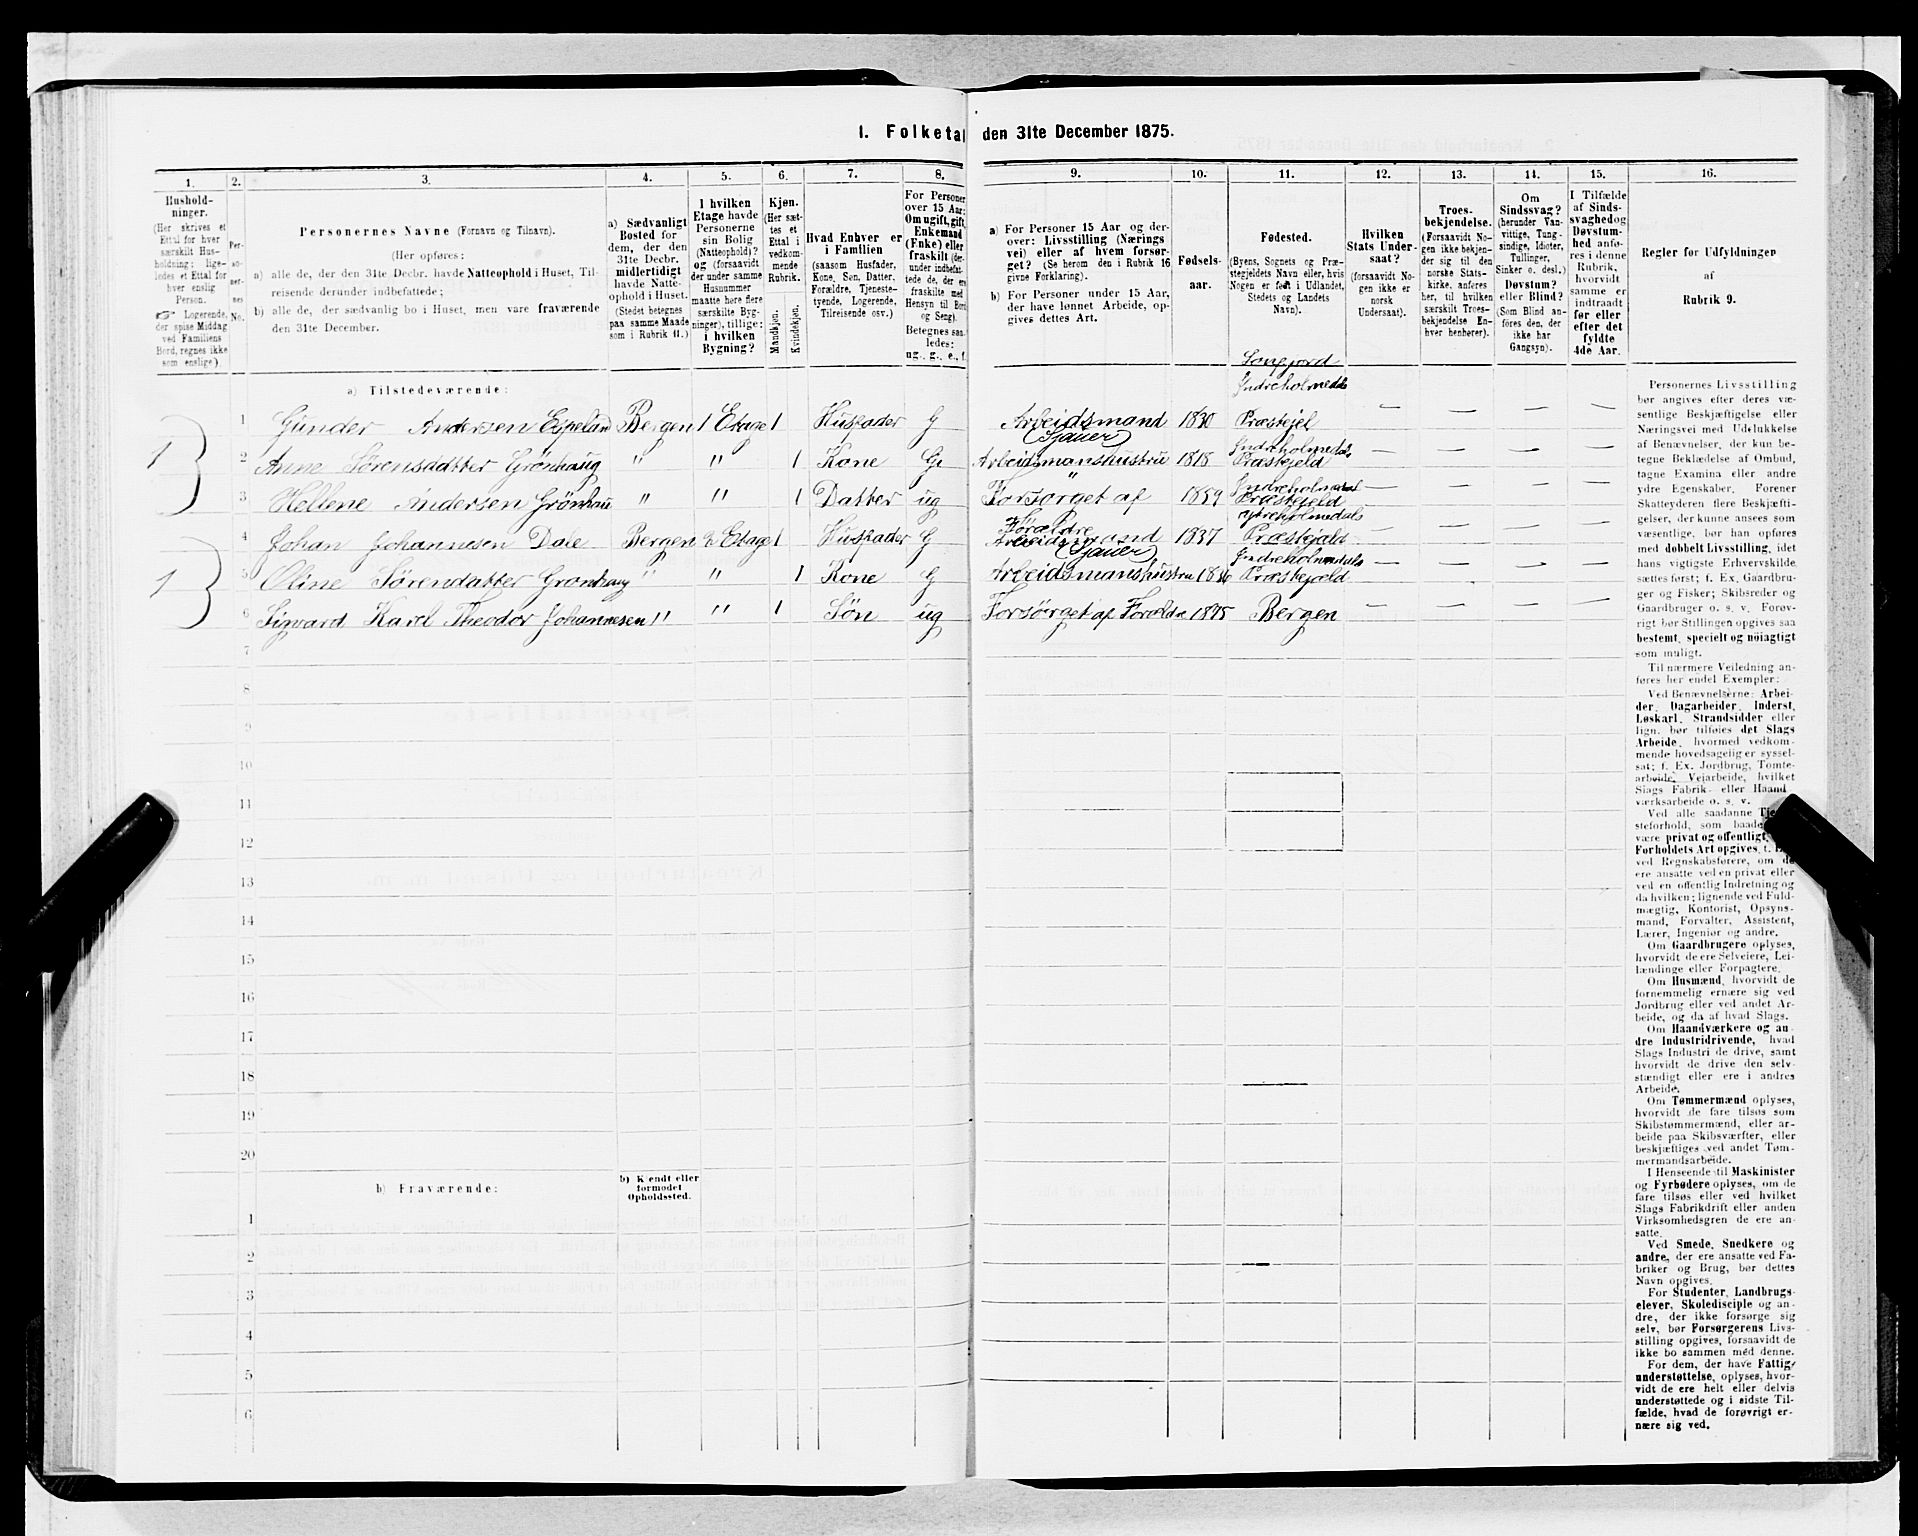 1. Folketal den 31te December 1875.
1.
Hushold-
ninger.
(Her skrives et
Ettal for hver
særskilt Hus-
holdning; lige-
ledes et Ettal for
hver enslig
Person.
☞ Logerende,
der spise Middag
ved Familiens
Bord, regnes ikke
som enslige).
2.
Per-
so-
ner-
nes
No.
3.
Personernes Navne (Fornavn og Tilnavn).
(Her opføres:
a) alle de, der den 31te Decbr. havde Natteophold i Huset, Til-
reisende derunder indbefattede;
b) alle de, der sædvanlig bo i Huset, men vare fraværende
den 31te December.
4.
a) Sædvanligt
Bosted for
dem, der den
31te Decbr.
midlertidigt
havde Natte-
ophold i Huset.
(Stedet betegnes
paa samme Maade
som i Rubrik 11.)
5.
I hvilken
Etage havde
Personerne
sin Bolig
(Natteophold)?
og (forsaavidt
der under samme
Husnummer
maatte høre flere
særskilte Byg-
ninger), tillige:
i hvilken
Bygning?
6.
Kjøn.
(Her sæt-
tes et
Ettal i
vedkom-
mende
Rubrik.
Mandkjøn.
Kvindekjøn.
7.
Hvad Enhver er
i Familien
(saasom Husfader,
Kone, Søn, Datter,
Forældre, Tjeneste-
tyende, Logerende,
Tilreisende osv.)
8.
For Personer
over 15 Aar:
Om ugift, gift,
Enkemand
(Enke) eller
fraskilt (der-
under indbefat-
tede de, der ere
fraskilte med
Hensyn til Bord
og Seng).
Betegnes saa-
ledes:
ug., g., e., f.
9.
a) For Personer 15 Aar og der-
over: Livsstilling (Nærings
vei) eller af hvem forsør-
get? (Se herom den i Rubrik 16
givne Forklaring).
b) For Personer under 15 Aar,
der have lønnet Arbeide, op-
gives dettes Art.
10.
Fødsels-
aar.
11.
Fødested.
(Byens, Sognets og Præ-
stegjeldets Navn eller, hvis
Nogen er født i Udlandet,
Stedets og Landets
Navn).
12.
Hvilken
Stats Under-
saat?
(forsaavidt No-
gen ikke er
norsk
Undersaat).
13.
Troes-
bekjendelse.
(Forsaavidt No-
gen ikke bekjen-
der sig til den
norske Stats-
kirke, anføres
her, til hvilken
særskilt Troes-
bekjendelse En-
hver henhører).
14.
Om
Sindssvag?
(herunder Van-
vittige, Tung-
sindige, Idioter,
Tullinger,
Sinker o. desl.)
Døvstum?
eller Blind?
(Som Blind an-
føres den, der
ikke har
Gangsyn).
15.
I Tilfælde
af Sinds-
svaghed og
Døvstum-
hed anfø-
res i denne
Rubrik,
hvorvidt
samme er
indtraadt
før eller
efter det
fyldte
4de Aar.
16.
Regler for Udfyldningen
af
Rubrik 9.
a) Tilstedeværende:
Indreholmedals
1 1 Gunder Andersen Espeland Bergen 1 Etage 1 Husfader G Arbeidsmand (Sjauer) 1830 Præstejel — — — —
2 Anne Sørensdatter Grönhaug " " 1 Kone G Arbeidsmanshustru 1818 Indreholmedals Præstejeld — — — —
3 Hellene Andersen Grönhau " " 1 Datter ug Forsørget af Forældre 1859 Præstejeld — — — —
1 4 Johan Johannesen Dale Bergen 2 Etage 1 Husfader G Arbeidsmand (Sjauer) 1837 ytreholmedals Præstejæld — — — —
5 Oline Sørendatter Gronhaug " " 1 Kone G Arbeidsmanshustru Indreholmedals Præstejæld — — — —
6 Sigvard Karel Theodor Johannesen " " 1 Søn ug Forsørget af Forældre 1875 Bergen — — — —
7
8
9
10
11
12
13
14
15
16
17
18
19
20
b) Fraværende:
b) Kjendt eller
formodet
Opholdssted.
1
2
3
4
5
6
Personernes Livsstilling
bør angives efter deres væ-
sentlige Beskjæftigelse eller
Næringsvei med Udelukkelse
af Benævnelser, der kun be-
tegne Beklædelse af Ombud,
tagne Examina eller andre
ydre Egenskaber. Forener
Skatteyderen flere Beskjæfti-
gelser, der kunne ansees som
væsentlige, bør han opføres
med dobbelt Livsstilling, idet
hans vigtigste Erhvervskilde
sættes først; f. Ex. Gaardbru-
ger og Fisker; Skibsreder og
Gaardbruger o. s. v. Forøv-
rigt bør Stillingen opgives saa
bestemt, specielt og nøiagtigt
som muligt.
Til nærmere Veiledning an-
føres her endel Exempler:
Ved Benævnelserne: Arbei-
der, Dagarbeider, Inderst,
Løskarl, Strandsidder eller
lign. bør tilføies det Slags
Arbeide, hvormed vedkom-
mende hovedsagelig er syssel-
sat; f. Ex. Jordbrug, Tomte-
arbeide, Veiarbeide, hvilket
Slags Fabrik- eller Haand-
værksarbeide o. s. v.
Ved alle saadanne Tje
steforhold, som baade
være privat og offentligt,
Forholdets Art opgives, t.
ved Regnskabsførere, om de
ere ansatte ved en privat eller
ved en offentlig Indretning og
da hvilken; lignende ved Fuld-
mægtig, Kontorist, Opsyns-
mand, Forvalter, Assistent,
Lærer, Ingeniør og andre.
Om Gaardbrugere oplyses,
hvorvidt de ere Selveiere, Lei-
lændinge eller Forpagtere.
Om Husmænd, hvorvidt de
fornemmelig ernære sig ved
Jordbrug eller ved andet Ar-
beide, og da af hvad Slags.
Om Haandværkere og an-
dre Industridrivende, hvad
Slags Industri de drive, samt
hvorvidt de drive den selv-
stændigt eller ere i andres
Arbeide.
Om Tømmermænd oplyses,
hvorvidt de fare tilsøs som
Skibstømmermænd, eller ar-
beide paa Skibsværfter, eller
beskjæftiges ved andet Tøm-
mermandsarbeide.
I Henseende til Maskinister
og Fyrbødere oplyses, om de
fare tilsøs eller ved hvilket
Slags Fabrikdrift eller anden
Virksomhedsgren de ere an-
satte.
Ved Smede, Snedkere og
andre, der ere ansatte ved Fa-
briker og Brug, bør dettes
Navn opgives.
For Studenter, Landbrugs-
elever, Skoledisciple og an-
dre, der ikke forsørge sig
selv, bør Forsørgerens Livs-
stilling opgives, forsaavidt de
ikke bo sammen med denne.
For dem, der have Fattig-
understøttelse, oplyses, hvor-
vidt de ere helt eller delvis
understøttede og i sidste Til-
fælde, hvad de forøvrigt er-
nære sig ved.